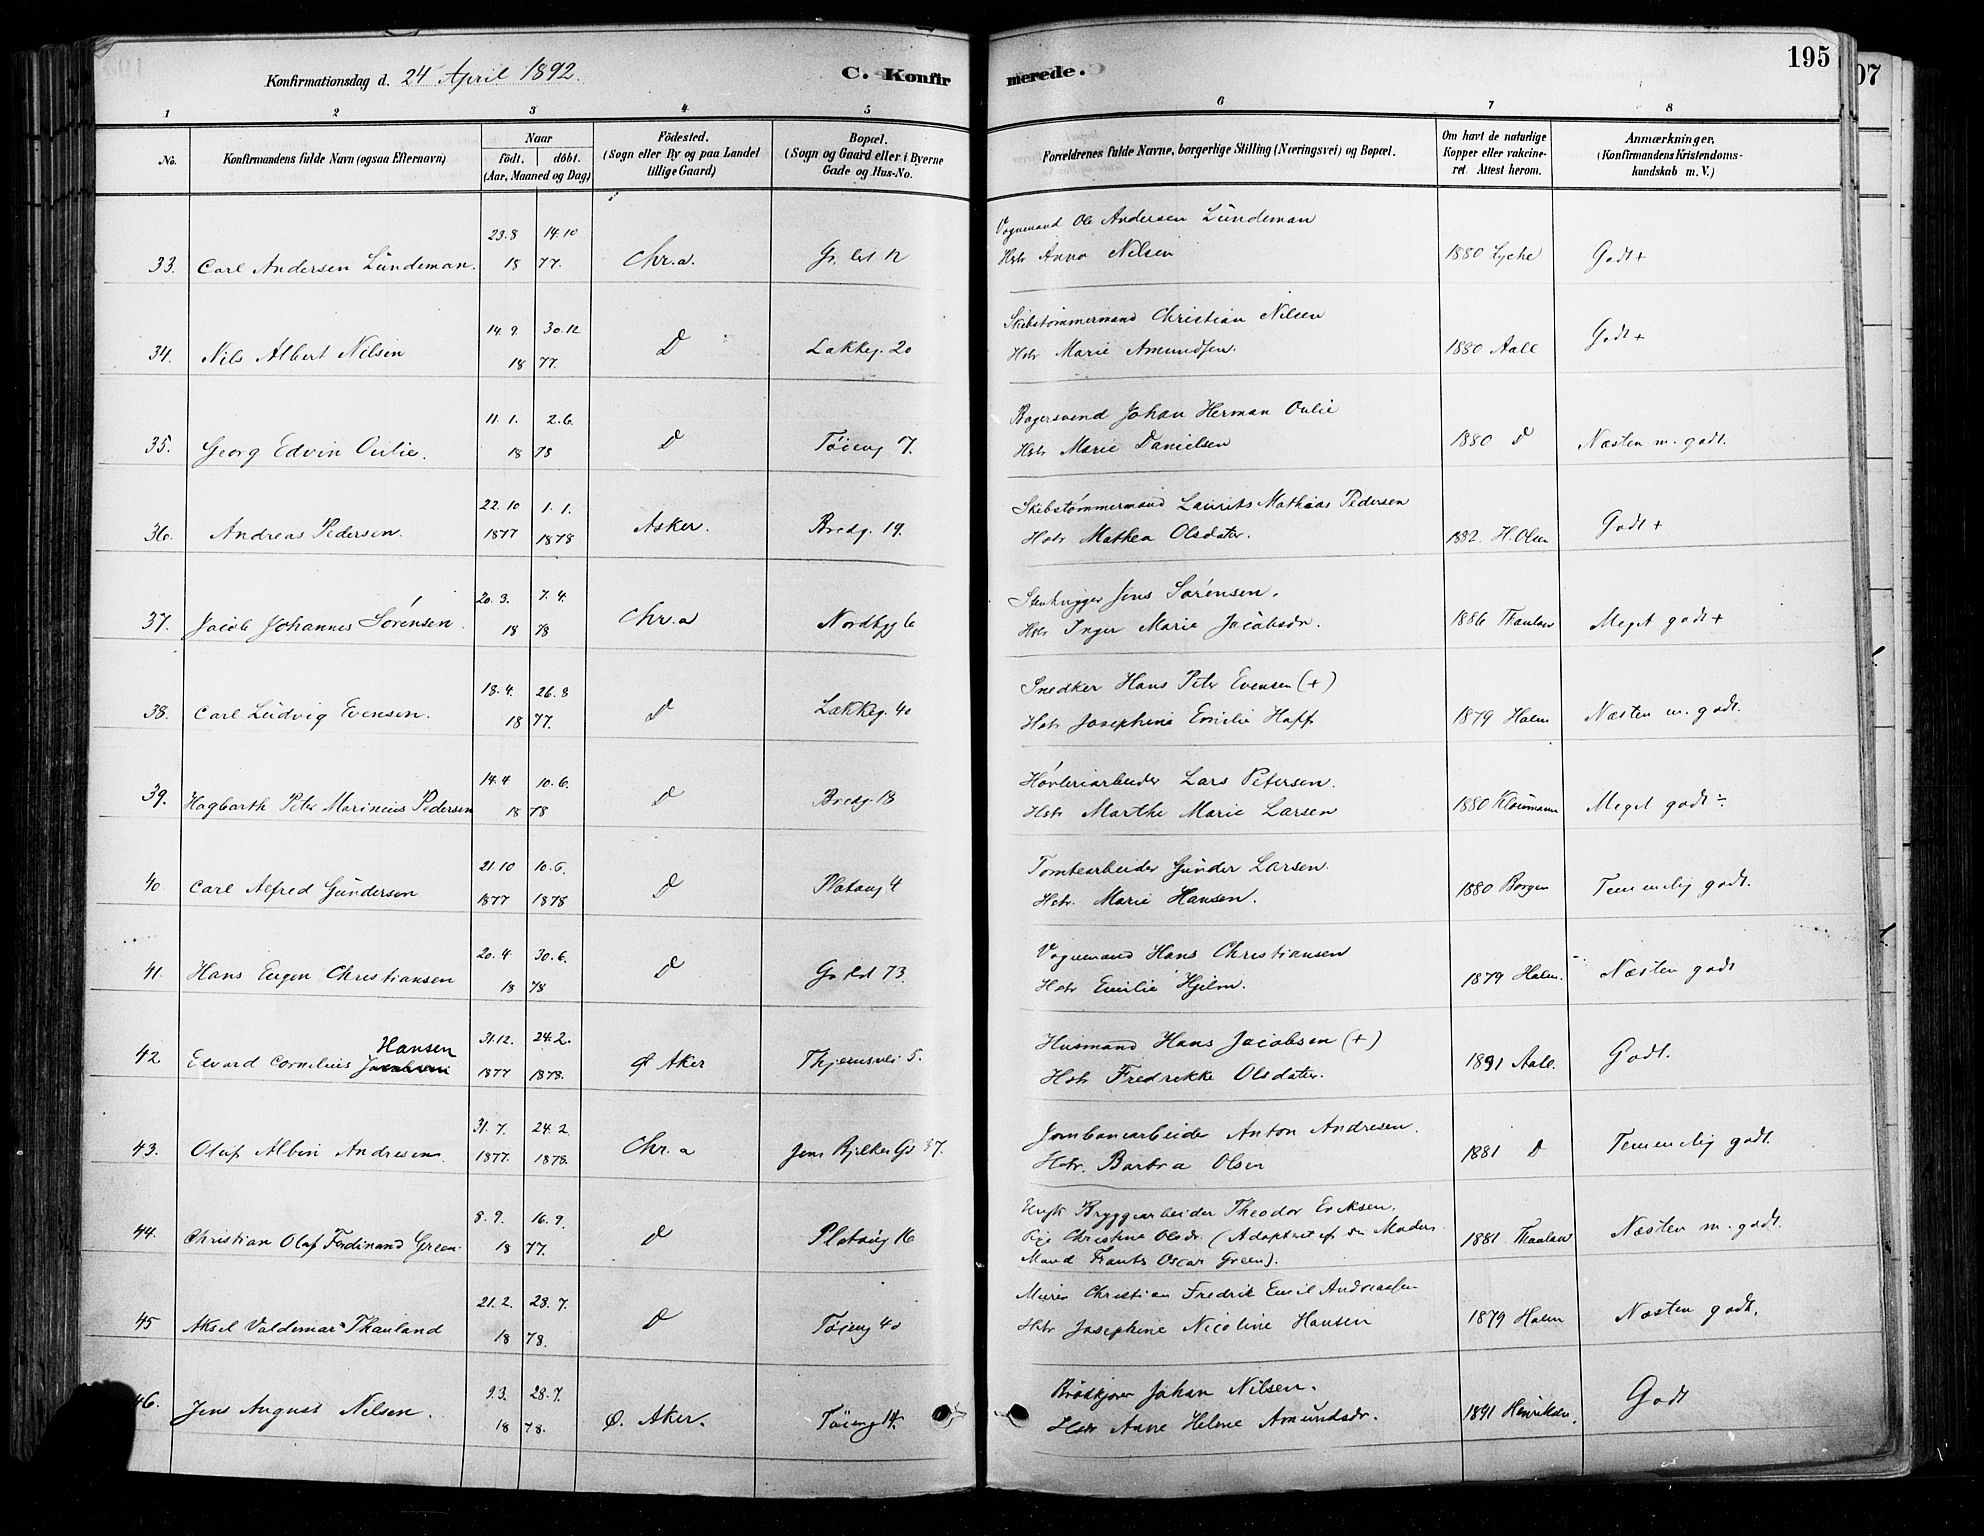 195
Konfirmationsdag d. 24 April 1892.
C. Konfirmerede.
1 2 3 4 5 6 7 8
No. Konfirmandens fulde Navn (ogsaa Efternavn) Naar födt. döbt. (Aar, Maaned og Dag) Födested. (Sogn eller By og paa Landet tillige Gaard) Bopæl. (Sogn og Gaard eller i Byerne Gade og Hus-No. Forældrenes fulde Navne, borgerlige Stilling (Næringsvei) og Bopæl. Om havt de naturlige Kopper eller vakcineret. Attest herom. Anmærkninger, (Konfirmandens Kristendomskundskab m. V.)
23.8 14.10 Vognmand Ole Andersen Lundeman
33. Carl Andersen Lundeman. 18 77. Chr.a. Gr. 12 Hstr Anna Nilsen 1880 Lyche Godt +
14.9. 30.12 Skibstømmermand Christian Nilsen
34. Nils Albert Nilsen 18 77. D Lakkeg. 20 Hstr Marie Amundsen. 1880 Aall Godt +
11.1. 2.6. Bagersvend Johan Herman Oulie
35. Georg Edvin Oulie. 18 78 D Töieng 7. Hstr Marie Danielsen 1880 D Næsten m. godt.
22.10 1.1. Skibstømmermand Laurits Mathias Pedersen
36. Andreas Pedersen. 1877 1878 Asker. Bredg. 19. Hstr Mathea Olsdatter. 1882. H. Olsen Godt +
20.3. 7.4. Stenhugger Jens Sørensen.
37. Jacob Johannes Sörensen. 18 78 Chr.a Nordbyg 6 Hstr Inger Marie Jacobsdr. 1886 Thaulow Meget godt +
18.4. 26.8 Snedker Hans Peter Evensen (+)
38. Carl Ludvig Evensen. 18 77. D Lakkeg. 40 Hstr Josephine Emilie Hoff 1879 Holm Næsten m. godt.
14.4 10.6. Høvleriarbeider Lars Petersen.
39. Hagbarth Peter Marinius Pedersen 18 78 D Bredg. 18 Hstr Marthe Marie Larsen 1880 Kloumann Meget godt ÷
21.10 10.6. Tomtearbeider Gunder Larsen.
40 Carl Alfred Gundersen 1877 1878 D Platoug 4 Hstr. Marie Hansen. 1880 Borgen Temmelig godt.
20.4 30.6. Vognmand Hans Christiansen
41. Hans Eugen Christiansen 18 78 D 73. Hstr Emilie Hjelm. 1879 Holm. Næsten godt
Hansen 31.12. 24.2. Husmand Hans Jacobsen (+)
42 Edvard Cornelius Jacobsen 1877 1878. Ø Aker Thjernsvei 5. Hstr Fredrikke Olsdatter. 1891 Aall. Godt.
31.7. 24.2. Jernbanearbeider Anton Andresen.
43. Oluf Albin Andresen. 1877. 1878. Chr.a Jens Bjelkes Gd 37. Hstr. Barbra Olsen 1881 D Temmelig godt.
8.9. 16.9. Ungk Bryggearbeider Theodor Eriksen.
44. Christian Olaf Ferdinand Green. 18 77. D Platoug 16 Pige Christine Olsdr. (Adopteret af sin Moders 1881 Thaulow Næsten m. godt.
Mand Frants Oscar Green).
21.2. 28.7. Murer Christian Fredrik Emil Andreassen
45 Aksel Valdemar Thauland 18 78. D Töieng 40 Hstr Josephine Nicoline Hansen 1879 Holm Næsten godt.
9.3. 28.7. Brødkjører Johan Nilsen.
46. Jens August Nilsen. 18 78. Ø. Aker. Töieng 14. Hstr Anne Helene Amundsdr. 1891 Henriksen. Godt